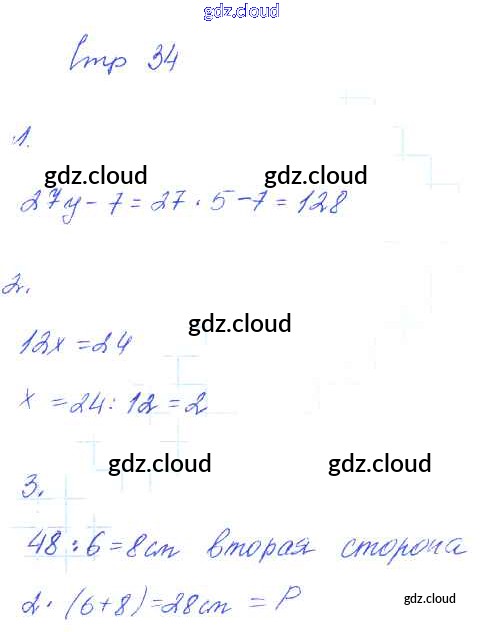 gdz.cloud
Стр 34
1.
gdz.cloud gdz.cloud
27y - 7 = 27 · 5 - 7 = 128
2.
gdz.cloud
12x = 24
x = 24 : 12 = 2
gdz.cloud gdz.cloud
3.
48 : 6 = 8см вторая сторона
2 · (6+8) = 28см = P
gdz.cloud